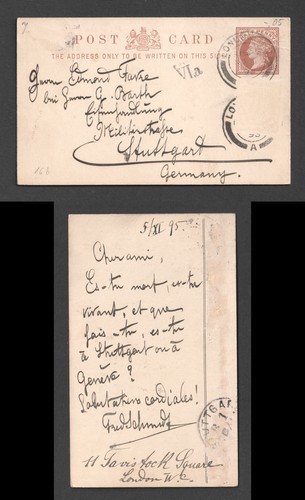 7. 05
POST CARD
THE ADDRESS ONLY TO BE WRITTEN ON THIS SIDE
LONDON
Via
Herrn Edmond
bei Herrn G. Barth
Eisenhandlung
Militärstrasse
Stuttgart
Germany.
LON
95
A
5/XI 95
Cher ami,
Es-tu mort, es-tu
vivant, et que
fais-tu, es-tu
à Stuttgart ou à
Genève?
Salutations cordiales!
Fred Schmidt
TTGA
11 Tavistock Square
London W.C.